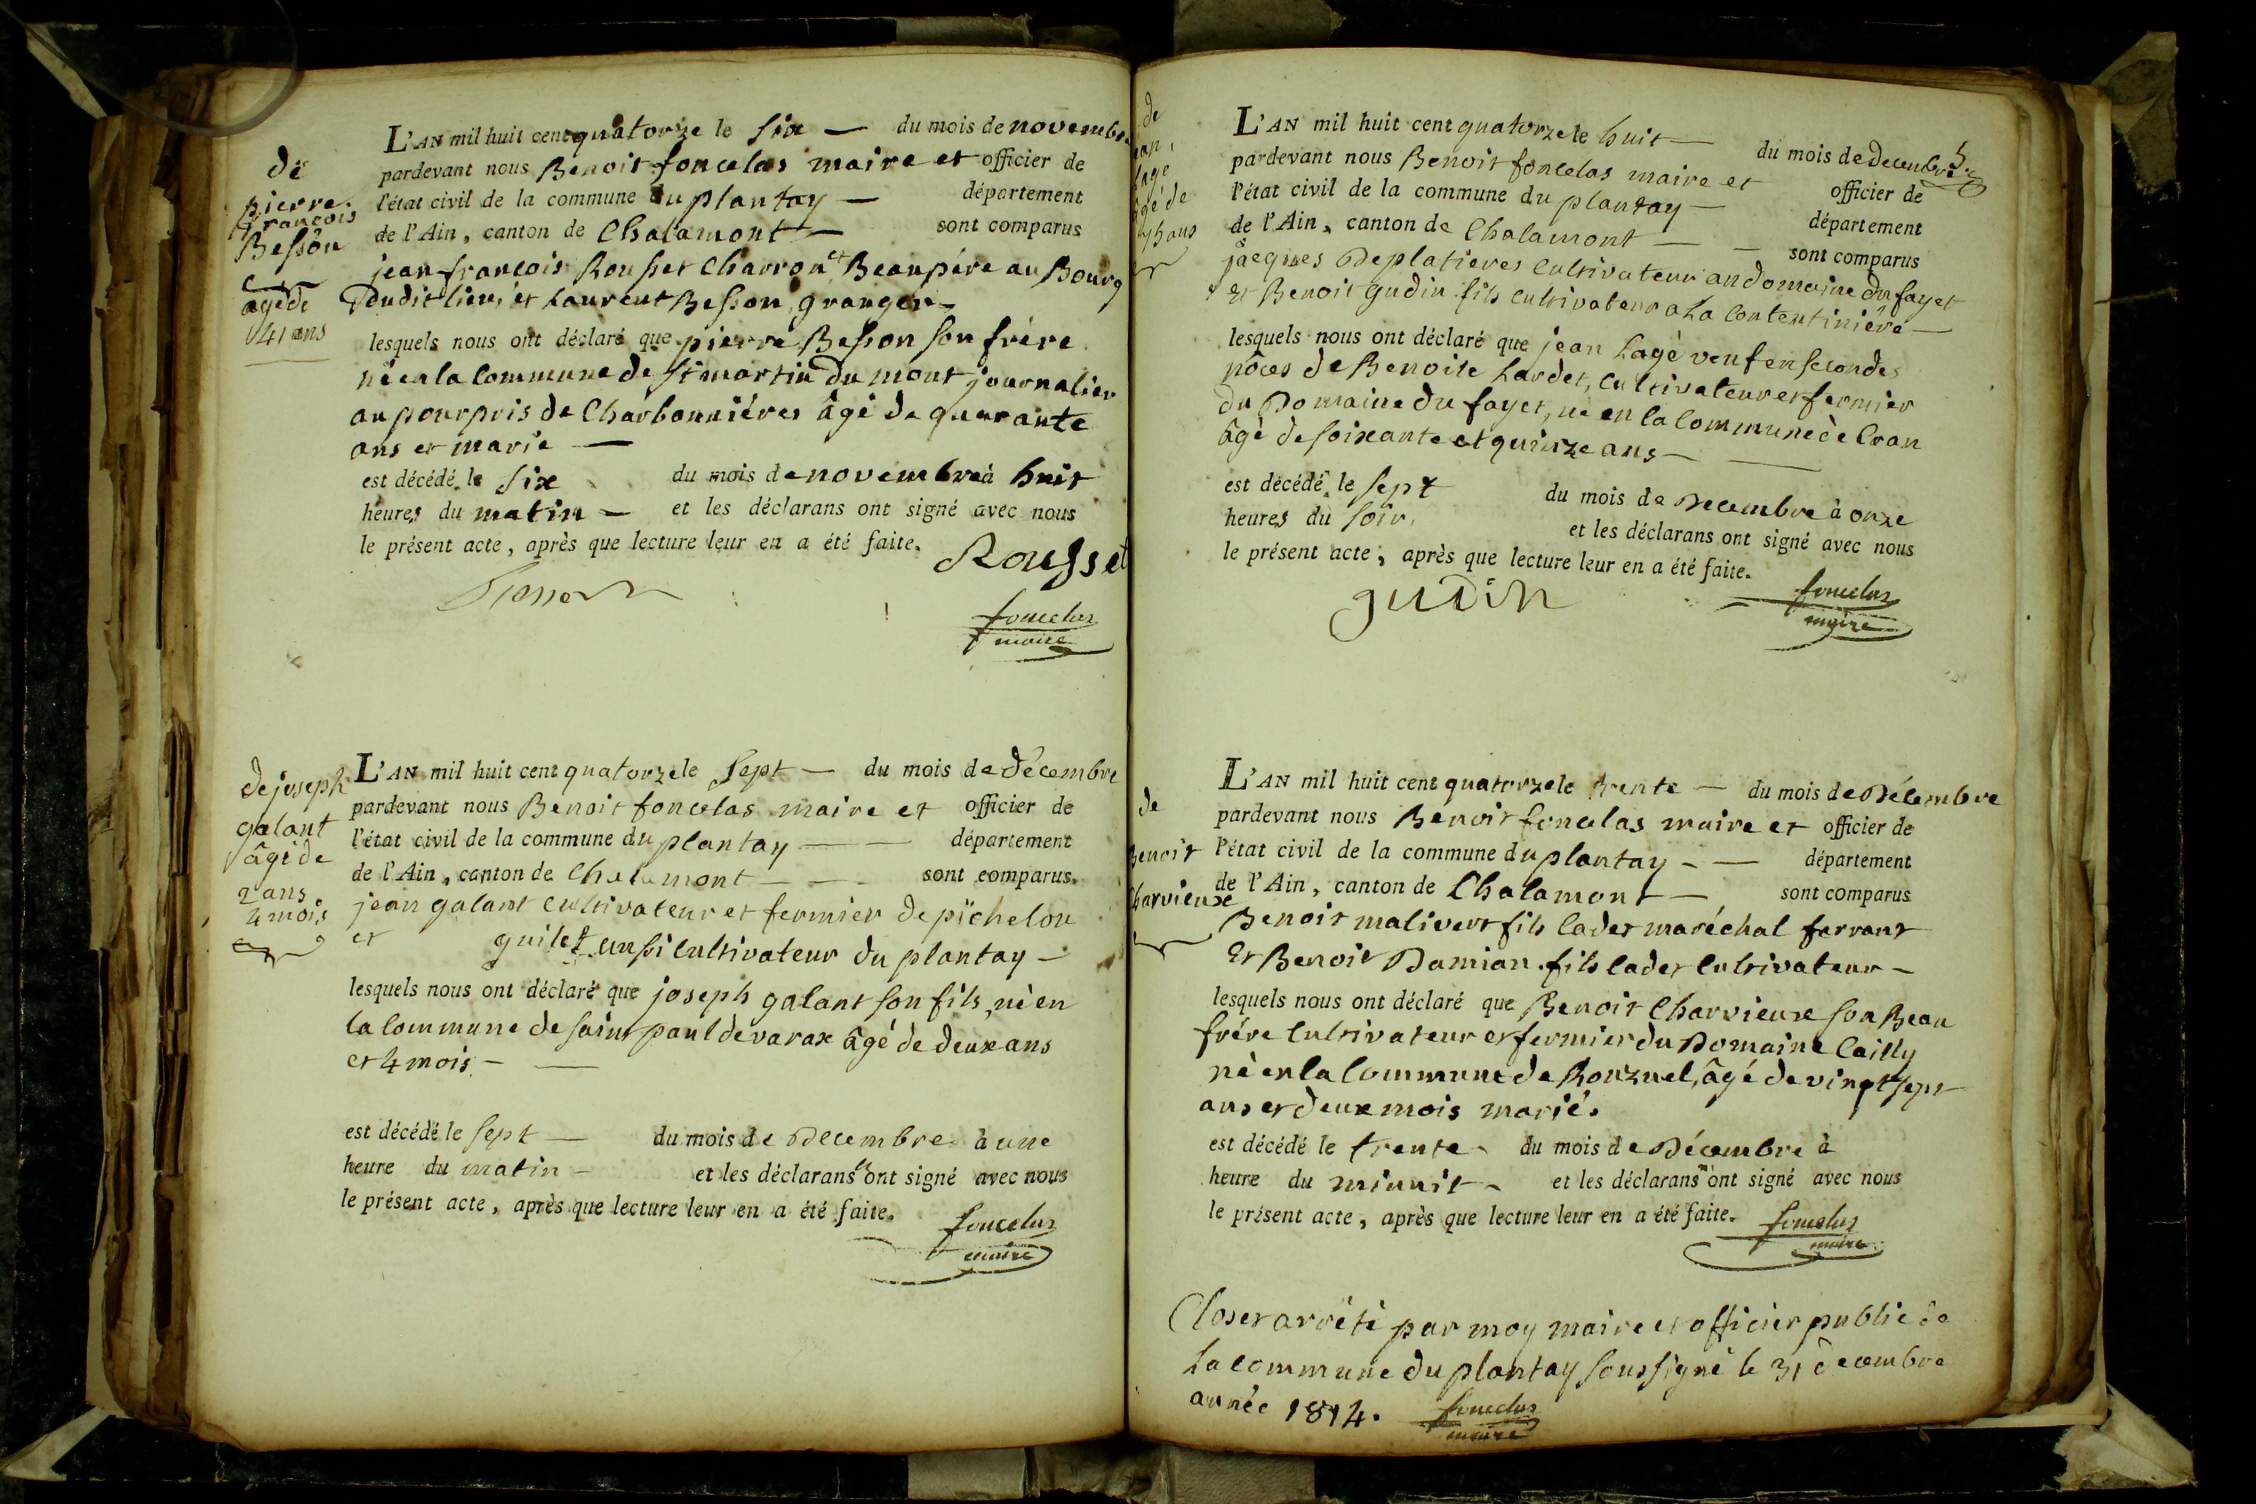 de
pierre
françois
Besson
âgé de
41 ans
L'AN mil huit cent quatorze le six — du mois de novembre
pardevant nous Benoit foncelas maire et officier de
l'état civil de la commune du plantay — département
de l'Ain, canton de Chalamont — sont comparus
jean françois Rousset Charron et Beaupère au Bourg
dudit lieu, et Laurent Besson granger —
lesquels nous ont déclaré que pierre Besson son frère
né en la Commune de St martin du mont journalier
au pourpris de Charbonniéres âgé de quarante
ans et marie —
est décédé le six du mois de novembre à huit
heures du matin — et les déclarans ont signé avec nous
le présent acte, après que lecture leur en a été faite.
Rousset
foncelas
maire
de joseph
galant
âgé de
2 ans
4 mois
L'AN mil huit cent quatorze le sept — du mois de décembre
pardevant nous Benoit foncelas maire et officier de
l'état civil de la commune du plantay — — département
de l'Ain, canton de Chalamont — — sont comparus
jean galant cultivateur et fermier de pichelou
et guilet aussi cultivateur du plantay —
lesquels nous ont déclaré que joseph galant son fils, né en
la Commune de saint paul de varax âgé de deux ans
et 4 mois — —
est décédé le sept — du mois de Décembre à une
heure du matin — et les déclarans n'ont signé avec nous
le présent acte, après que lecture leur en a été faite.
foncelas
maire
de
jean
Lagé
âgé de
75 ans
L'AN mil huit cent quatorze le huit — du mois de decembre
pardevant nous Benoit foncelas maire et officier de
l'état civil de la commune du plantay — département
de l'Ain, canton de Chalamont — — sont comparus
jacques Deplatieres cultivateur au domaine du fayet
et Benoit gudin fils cultivateur a La Contentiniére —
lesquels nous ont déclaré que jean Lagé veuf en secondes
nôces de Benoite Lardet, cultivateur et fermier
du Domaine du fayet, né en la commune de Cran
âgé de soixante et quinze ans — —
est décédé le sept du mois de Decembre à onze
heures du soir, et les déclarans ont signé avec nous
le présent acte, après que lecture leur en a été faite.
gudin
foncelas
maire
de
Benoit
Charvieux
L'AN mil huit cent quatorze le trente — du mois de Décembre
pardevant nous Benoit foncelas maire et officier de
l'état civil de la commune du plantay — — département
de l'Ain, canton de Chalamont — sont comparus
Benoit malivert fils cadet maréchal ferrant
et Benoit Damian fils cadet cultivateur —
lesquels nous ont déclaré que Benoit Charvieux son Beau
frére cultivateur et fermier du Domaine Cailly
né en la Commune de Ronzuel, âgé de vingt sept
ans et deux mois marié.
est décédé le trente du mois de Décembre à
heure du minuit — et les déclarans n'ont signé avec nous
le présent acte, après que lecture leur en a été faite.
foncelas
maire
Clos et arrêté par moy maire et officier public de
La commune du plantay soussigné le 31 decembre
année 1814.
foncelas
maire